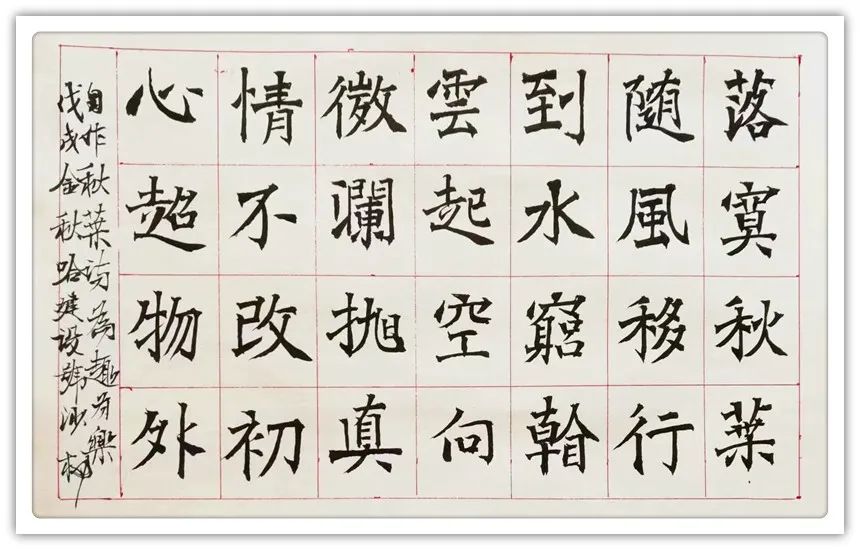 落寞秋葉
随風移行
到水窮
雲起空向
微瀾抛真
情不改初
心超物外
自作秋葉為趣為樂
戊戌金秋哈建设